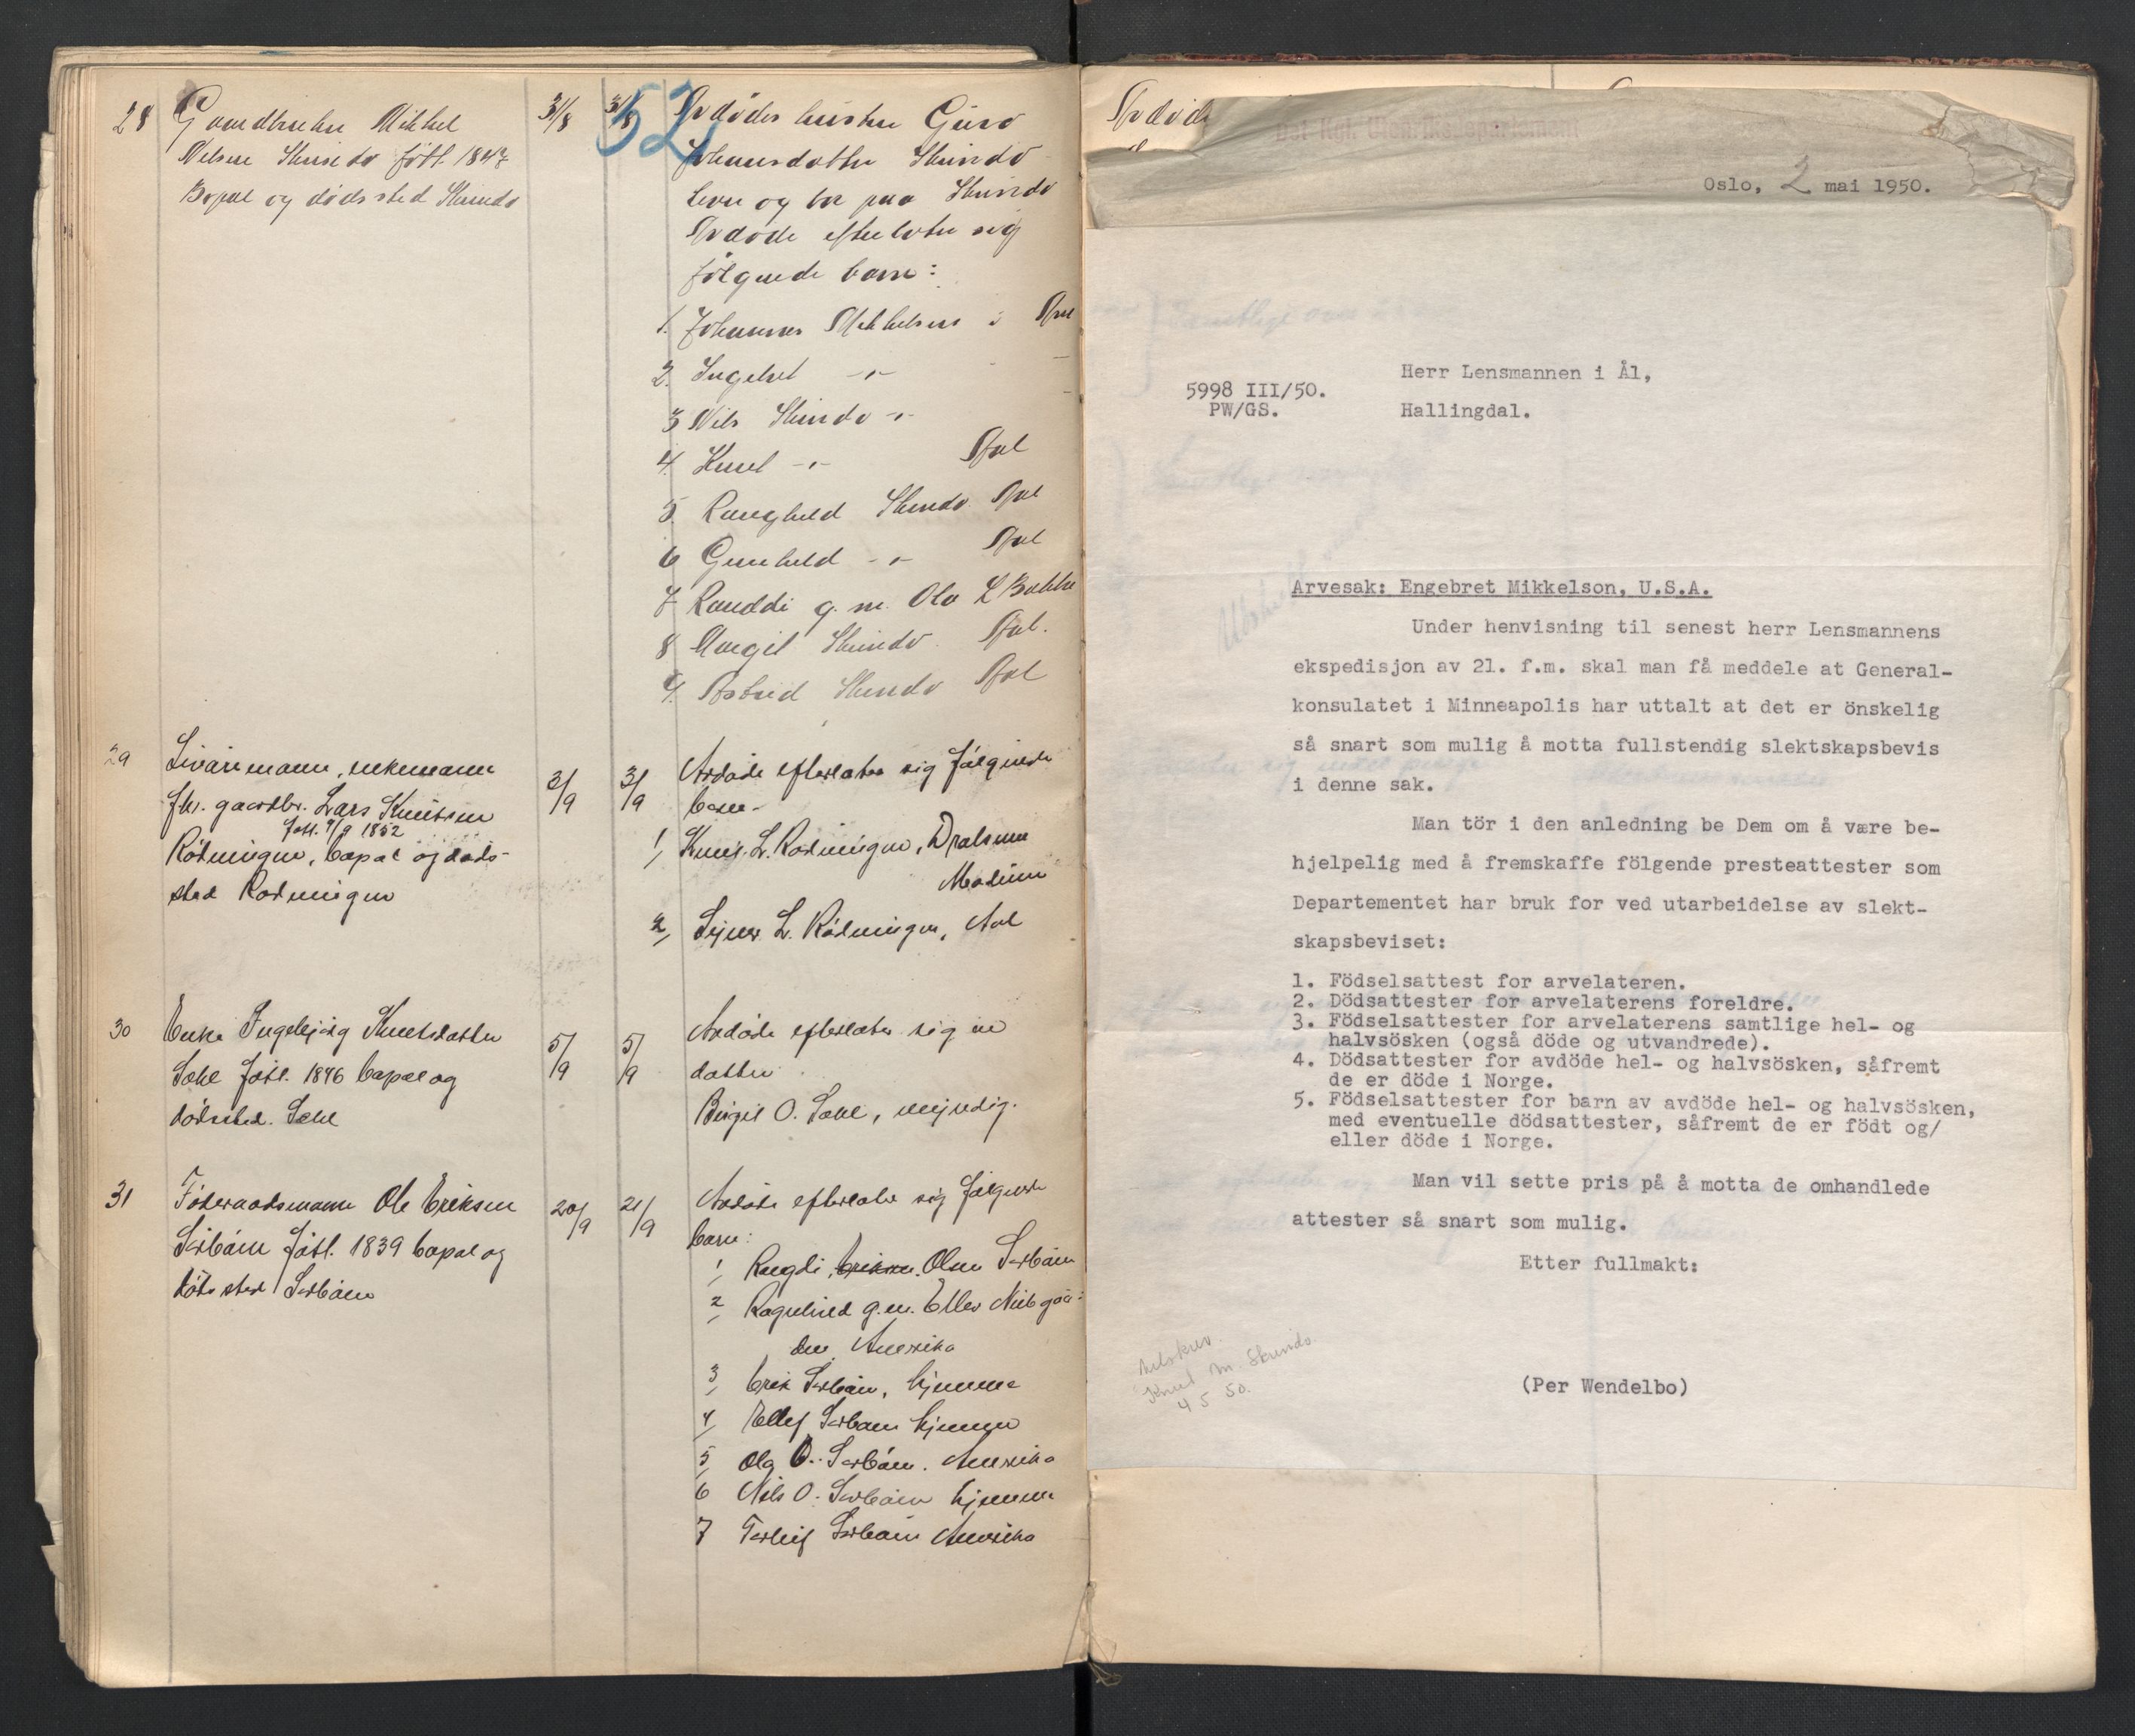 52
28 Gaardbruker Mikkel
Nilsen Skrindo född 1847
Bopæl og dödssted Skrindo
31/8 31/8
Avdödes hustru Guro
Johannesdatter Skrindo
lever og bor paa Skrindo
Avdöde efterlater sig
fölgende barn:
1. Johannes Mikkelsen i Am
2. Ingebret -"-
3 Nils Skrindo -"-
4. Knut -"- Aal
5. Rangheld Skrindo Aal
6 Gunheld -"- Aal
7 Randdi g. m. Ola L Bakke
8 Margit Skrindo Aal.
9. Astrid Skrindo Aal
29 Livöremann, enkemann
fhv. gaardbr. Lars Knutsen
föd. 9/9 1852
Rödningen, bopæl og döds-
sted Rödningen
3/9 3/9
Avdöde efterlater sig fölgende
barn-
1, Knut L. Rödningen,
Modum
2, L. Rödningen, Aal
30 Enke Ingebjörg Knutsdatter
född. 1846 bopæl og
dödssted.
5/9 5/9
Avdöde efterlater sig en
datter
Birgit O. , umyndig.
31 Föderaadsmann Ole Eriksen
född. 1839 bopæl og
döds sted
20/9 21/9
Avdöde efterlater sig fölgende
barn:
1, Olsen
2, Ragnhild g.m.
den Amerika
3, Erik , hjemme
4, Ellef hjemme
5, O. Amerika
6 Nils O. hjemme
7 Amerika
Avdöde
Det Kgl. Utenriksdepartement
Oslo, 2 mai 1950.
Herr Lensmannen i Ål,
5998 III/50.
PW/GS.
Hallingdal.
Arvesak: Engebret Mikkelson, U.S.A.
Under henvisning til senest herr Lensmannens
ekspedisjon av 21. f.m. skal man få meddele at General-
konsulatet i Minneapolis har uttalt at det er önskelig
så snart som mulig å motta fullstendig slektskapsbevis
i denne sak.
Man tör i den anledning be Dem om å være be-
hjelpelig med å fremskaffe fölgende presteattester som
Departementet har bruk for ved utarbeidelse av slekt-
skapsbeviset:
1. Födselsattest for arvelateren.
2. Dödsattester for arvelaterens foreldre.
3. Födselsattester for arvelaterens samtlige hel- og
halvsösken (også döde og utvandrede).
4. Dödsattester for avdöde hel- og halvsösken, såfremt
de er döde i Norge.
5. Födselsattester for barn av avdöde hel- og halvsösken,
med eventuelle dödsattester, såfremt de er födt og/
eller döde i Norge.
Man vil sette pris på å motta de omhandlede
attester så snart som mulig.
Etter fullmakt:
(Per Wendelbo)
tilskrev
Knut M. Skrindo.
4 5 50.